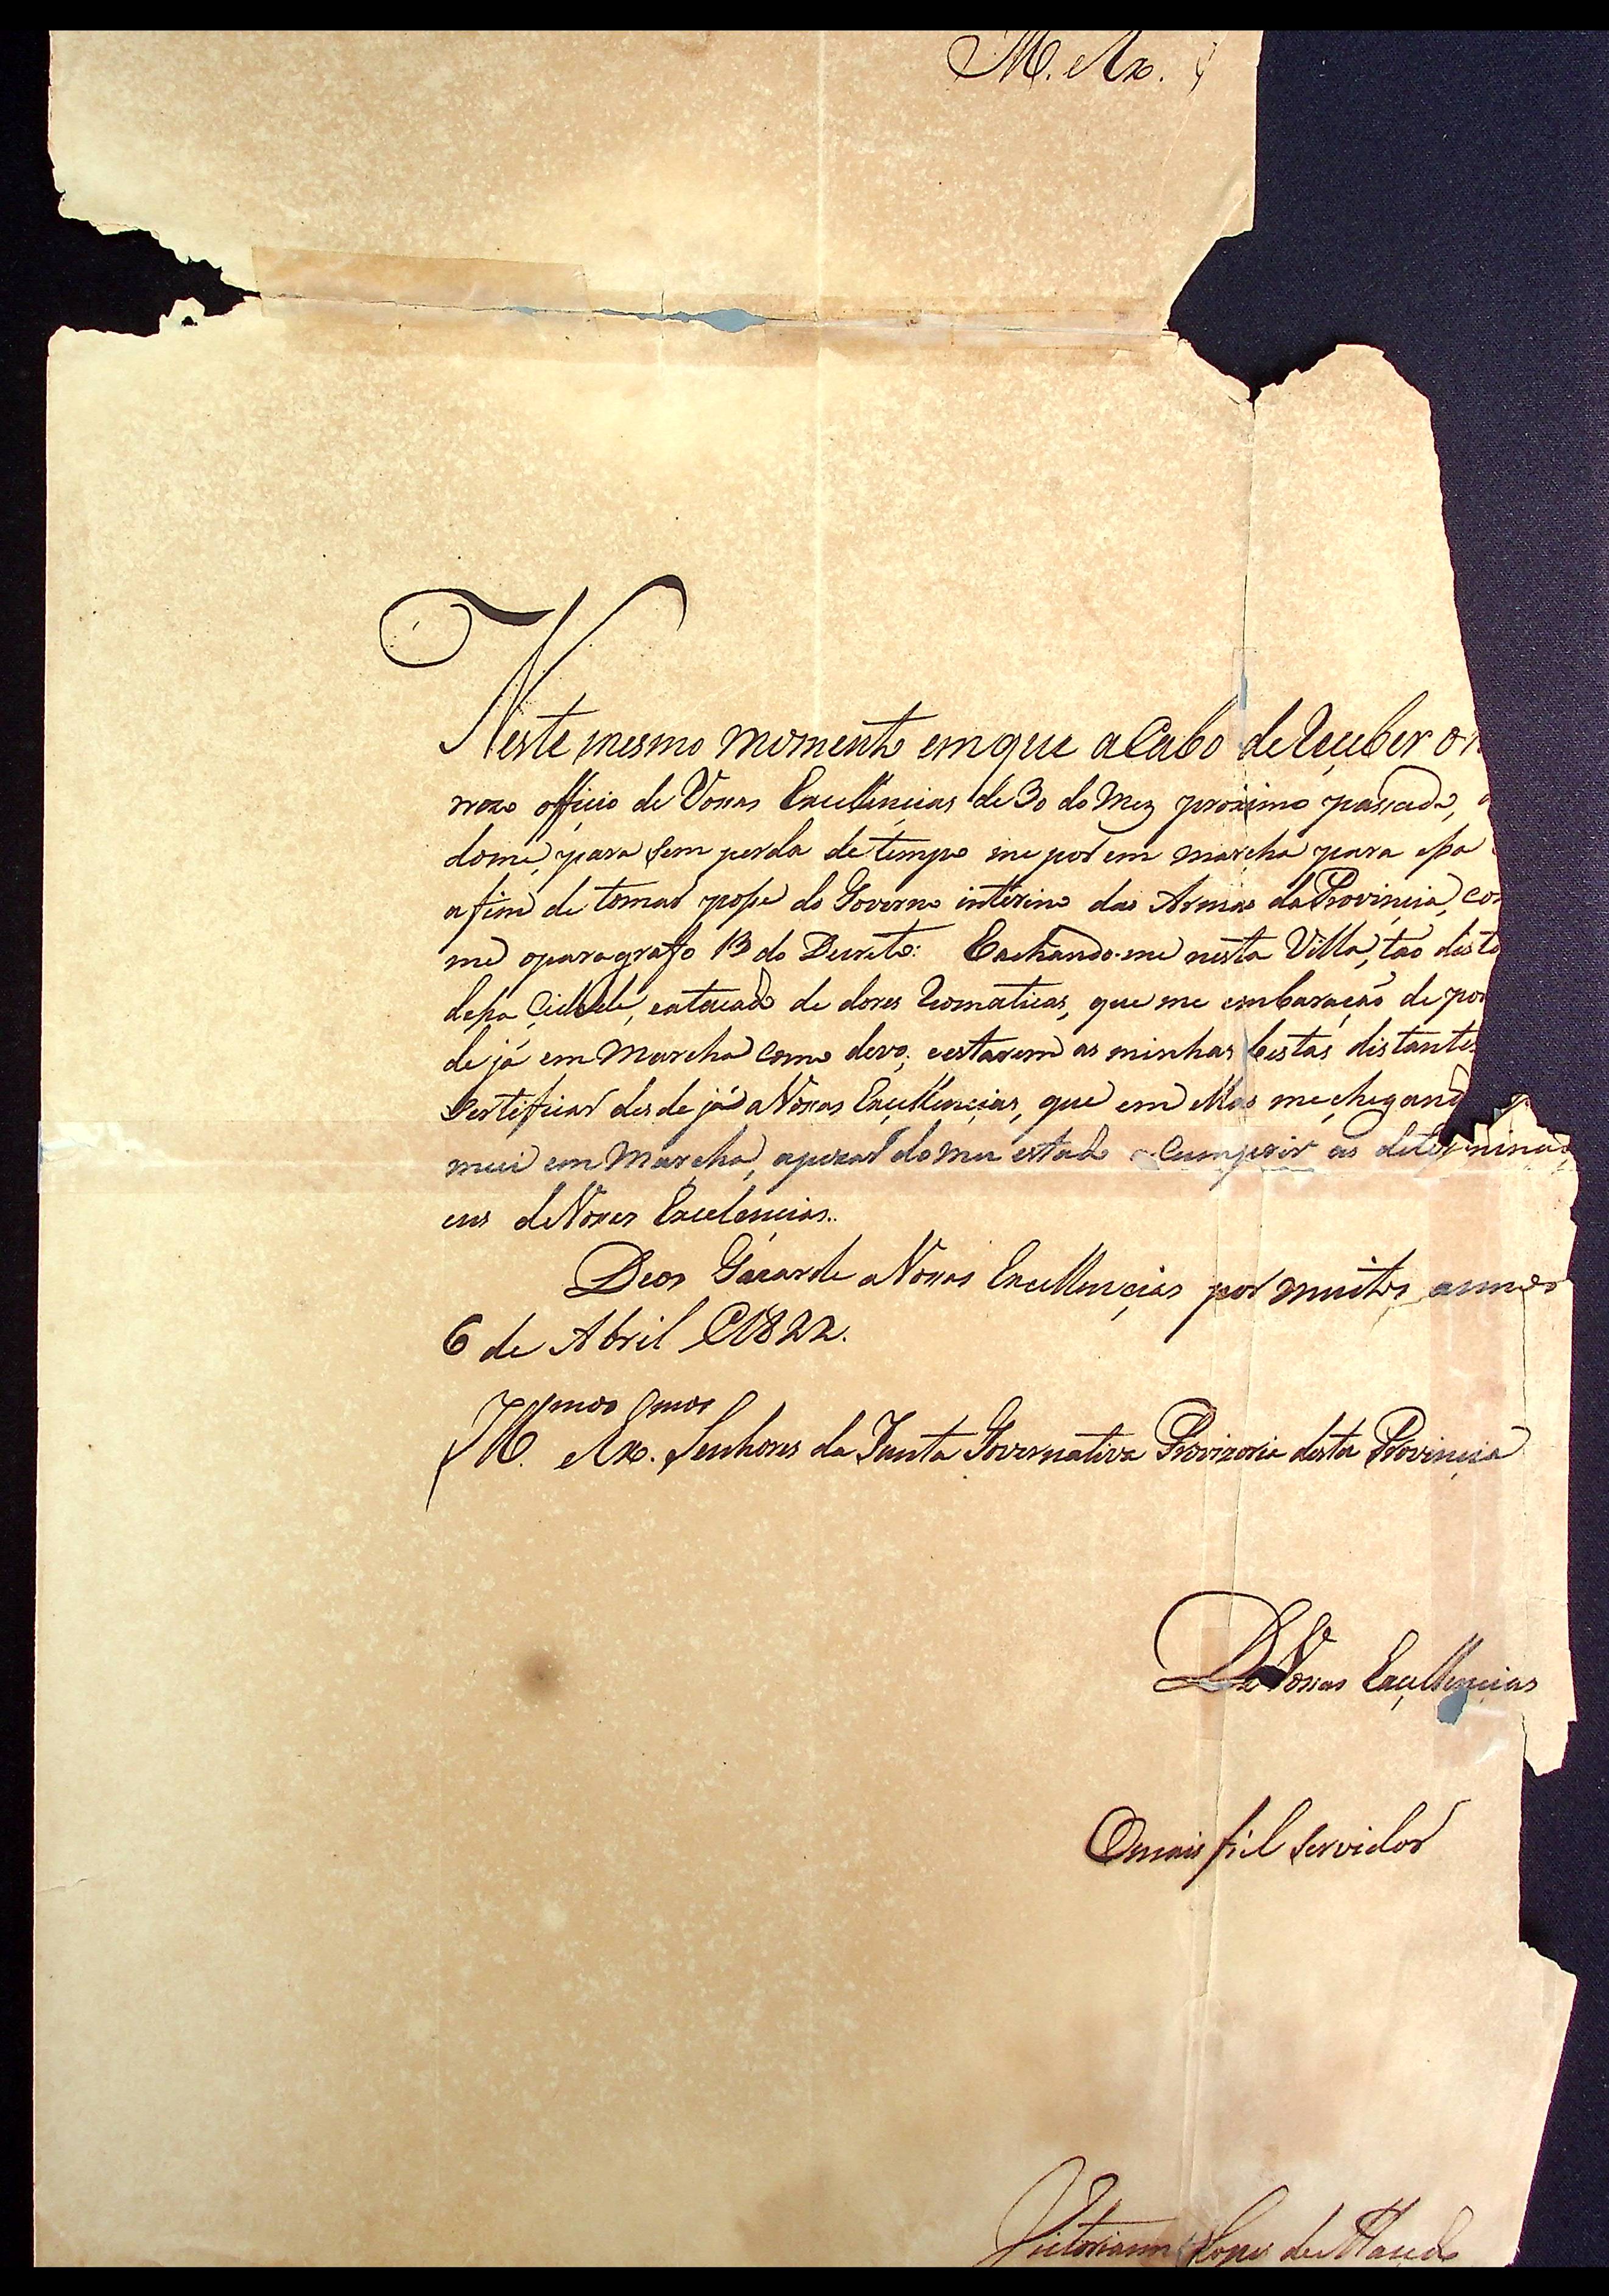 Ill. Ex.
Neste mesmo momento em que acabo de receber o
officio de Vossas Excellencias de 30 do Mez proximo passado,
dome, para sem perda de tempo me por em marcha para essa
afim de tomar posse do Governo interino das Armas da Provincia, con
me o paragrafo 13 do Decreto: E achando-me nesta Villa, tão dista
dessa Cidade, e atacado de dores reomaticas, que me embaração de por
de já em Marcha como devo, e estarem as minhas bestas distantes
Certificar desde já a Vossas Excellencias, que em ellas me chegand
em Marcha, apezar do meu estado a cumprir as determinaç
ens de Vossas Excelencias.
Deos Guarde a Vossas Excellencias por muitos annos
6 de Abril 1822.
Ill.mos Ex.mos Senhores da Junta Governativa Provizoria desta Provincia
De Vossas Excellencias
O mais fiel servidor
Victorianno Lopes de Macedo